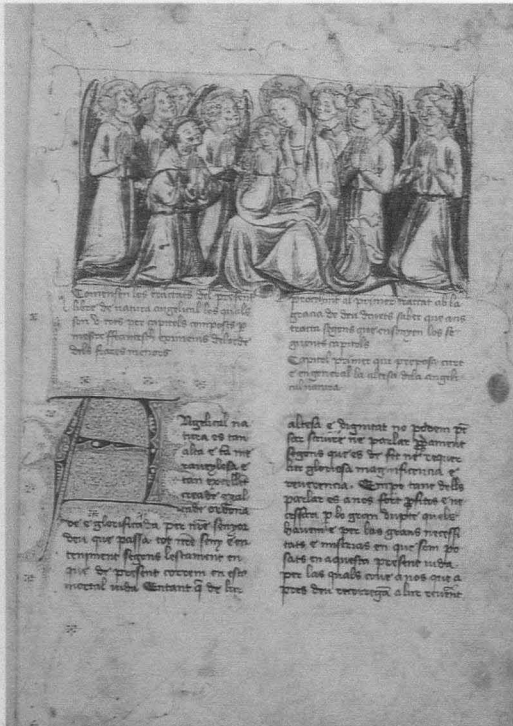 Comensen les tractats del present
libre de natura angelical los quals
son v. tots per capitols composts per
mestre francesch eximenis del orde
dels frares menors
Procehint al primer tractat ab la
gracia de deu deveu saber que ans
tracta segons que ensenyen los se
guents capitols
Capitol primer qui proposa curt
e en general la altesa dela angeli
cal natura
Angelical na
tura es tan
alta e ta me
raveylosa e
tan excellet
creada egal
ordena
da e glorificada per nre senyor
deu que passa tot nre seny e en
teniment segons lestament en
que de present correm en esta
mortal vida Entant q̄ de lur
altesa e dignitat no podem pē
sar scriure ne parlar
segons que es de fet ne requer
lur gloriosa magnificencia e
reverencia. Empo tant dells
parlar es anos fort pfitos e ne
cessari p lo gran dupte quels
havem e per las grans necessi
tats e miserias en que som po
sats en aquesta present vida
per las quals cove a nos que a
pres deu recorregā a lur reverēt